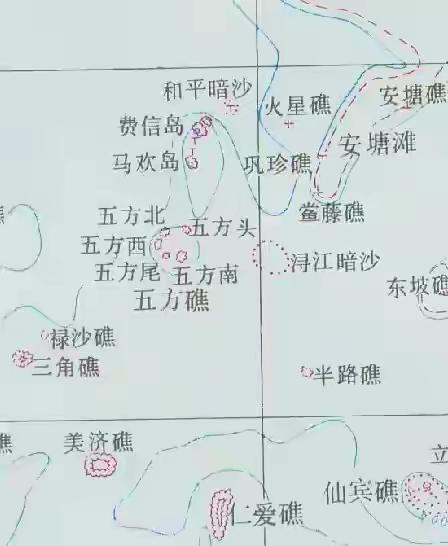 和平暗沙
安塘礁
火星礁
费信岛
安塘滩
马欢岛
巩珍礁
鲎藤礁
五方北
五方头
五方西
五方尾
五方南
浔江暗沙
五方礁
东坡礁
禄沙礁
三角礁
半路礁
美济礁
礁
仙宾礁
立
仁爱礁